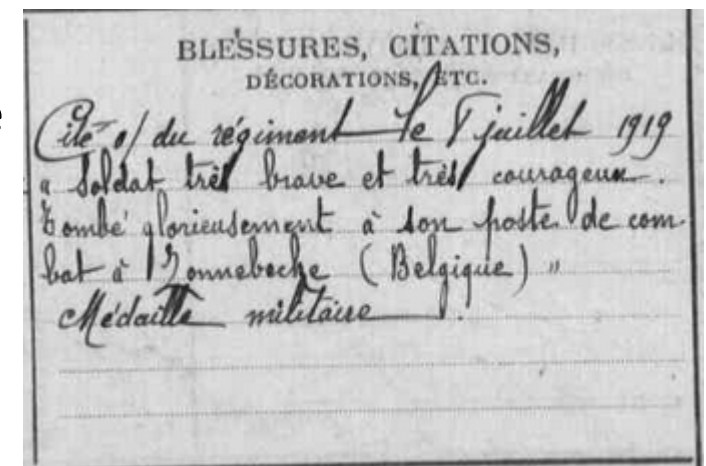 BLESSURES, CITATIONS,
DÉCORATIONS, ETC.
Cité o/ du régiment le juillet 1919
" Soldat très brave et très courageux.
Tombé glorieusement à son poste de com
bat à Zonnebecke (Belgique) "
Médaille militaire.